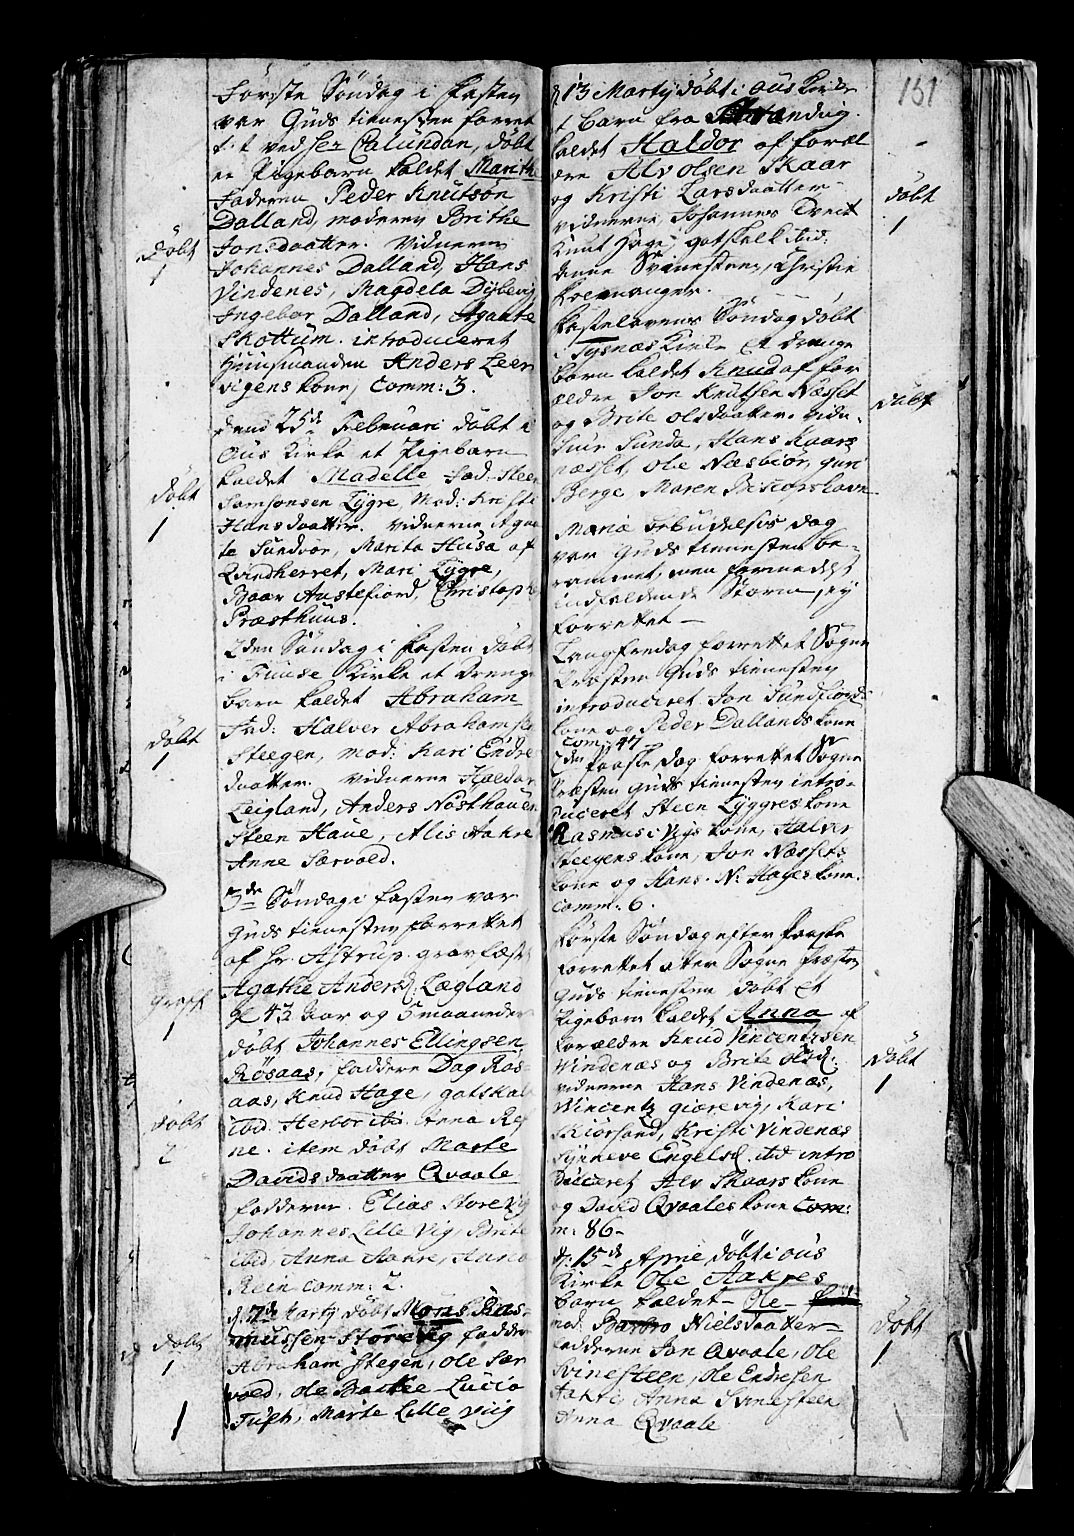 Første Søndag i Fasten
var Guds tienesten forret
tet ved Her Calundan, døbt
et Pigebarn kaldet Marithe
Faderen Peder Knutsøn
Dalland, moderen Brithe
Jonsdaatter. Vidnerne
Johannes Dalland, Hans
Vindenes, Magdela Dysevig,
Ingebor Dalland, Agaate
Skottum. introduceret
Huusmanden Anders Leer
vigens kone, Comm: 3.
døbt
1
dend 25de Februari døbt i
Ous Kirke et Pigebarn
kaldet Madelle Fad: Steen
Samsonsen Tygre, Mod: Kriste
Hansdaatter. Vidnerne Aga
te Sundvor, Marita Husa af
Qvindherret, Mari Lygre,
Baar Austefiord, Christopher
Præsthuus.
døbt
1
2den Søndag i Fasten døbt
i Fuuse Kirke et Drenge
barn kaldet Abraham
Fad: Halver Abrahamsen
Steegen, mod: Kari Endre
daatter. Vidnerne Haldor
Leigland, Anders Nøsthauen
Steen Haue, Alis Aakre
Anne Særvold.
døbt
1
3de Søndag i Fasten var
Guds tienesten forrettet
af Hr Astrup. grav fæst
Agathe Andersd. Lægland
43 Aar og 5 maaneder
døbt Johannes Ellingsen
Røsaas, faddere Dag Røs
aas, Knud Hage, gotskal
ibid. Herbor ibi. Anna Re
ne. item døbt Marte
Davidsdaatter Qvaale
fadderne. Elias Storevig
Johannes Lille Vig, Brite
ibid, Anna Aakre, Anna
Rein comm: 2.
græft
1
døbt
2
d. 7de Marty døbt Mons Ras
mussen Storevig fadder
Abraham Stegen, Ole Sær
vold, Ole Bakke Lucia
Tuft, Marte Lille Viig
døbt
1
1
151
d 13 Marty døbt i Ous Kirke
et barn fra Strandvig.
kaldet Haldor af foræl
dre Alv Olsen Skaar
og Kristi Larsdaatter
vidnerne, Johannes Tveit
Knut Hage, gotskalk ibid:
Svinesteen, Christie
døbt
1
Fastelavens Søndag døbt
i Tysnæs Kirke et Drenge
barn kaldet Knud af for
ældre Jon Knutsen Næsset
og Brite Olsdaatter. Vidn.
Siur Sunda, Hans Kaars
næsset, Ole Næsbiør, guri
Berge Maren Bischopshavn
døbt
Mariæ Bebudelses dag
var Guds tienesten be-
rammet, men formedelst
indfaldende Storm, ey
forrettet
Langfredag forrettet Sogne
Præsten Guds tienesten
introduceret Jon Sundfiords
kone og Peder Dallands kone
Com: 47
2den Paaske Dag forrettet Sogne
Præsten Guds tienesten intro-
duceret Steen Lyggres kone
Rasmus i Vigs kone, Halver
Steegens kone, Jon Næssets
kone og Hans N: Hages kone.
Comm: 6.
Første Søndag efter Paaske
forrettet atter Sogne Præsten
Guds tienesten døbt et
Pigebarn kaldet Anna af
forældre Knud Vincentsen
Windenæs og Brite Olsd:
vidnerne Hans Vindenæs,
Wincentz giørevig, Kari
Skiørsand, Kristi Vindenæs
Synneve Engelsd. ibid intro
duceret Alv Skaars kone
og David Qvaales kone Com:
m: 86-
døbt
1
d. 15de Aprie døbt i Ous
Kirke Ole Aakres
barn kaldet - Ole -
mod: Barbro Nielsdaatter
fadderne Jan Qvaale, Ole
Svinesteen, Ole Endresen
Aakre, Anna Svinesteen
Anna Qvaale
døbt
1
1